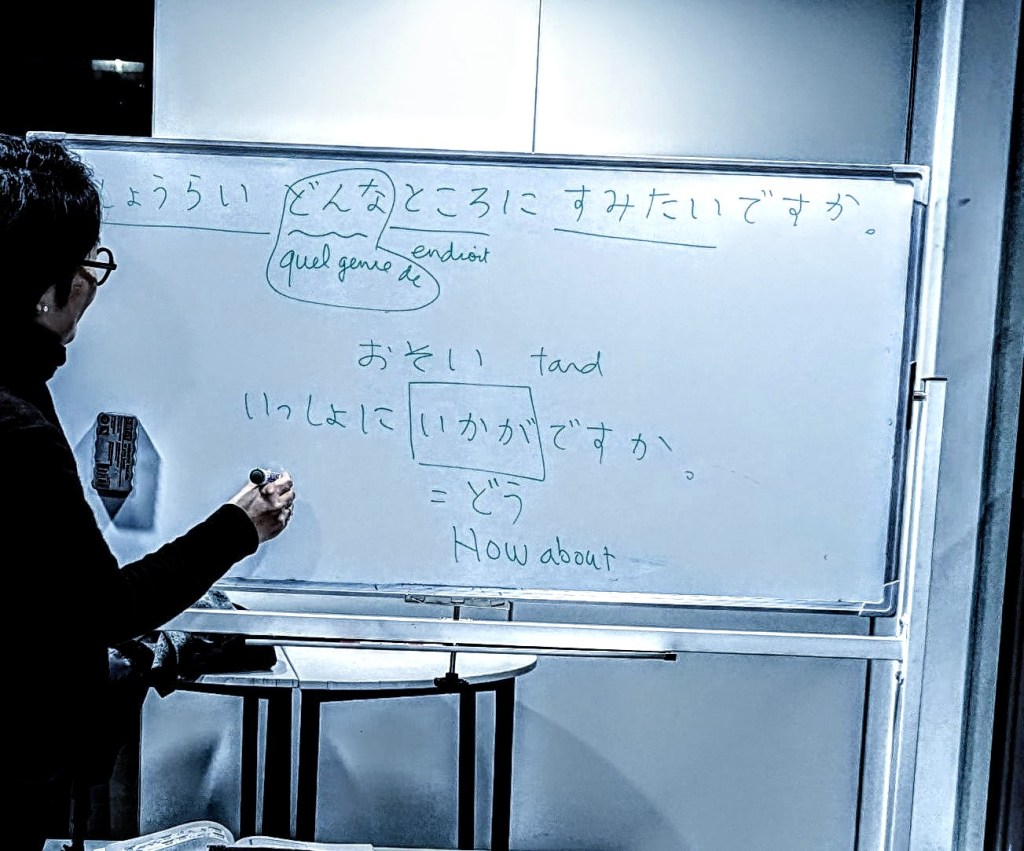 ょうらい どんな ところに すみたいですか。
quel genre de endroit
おそい tard
いっしょに いかが ですか。
= どう
How about